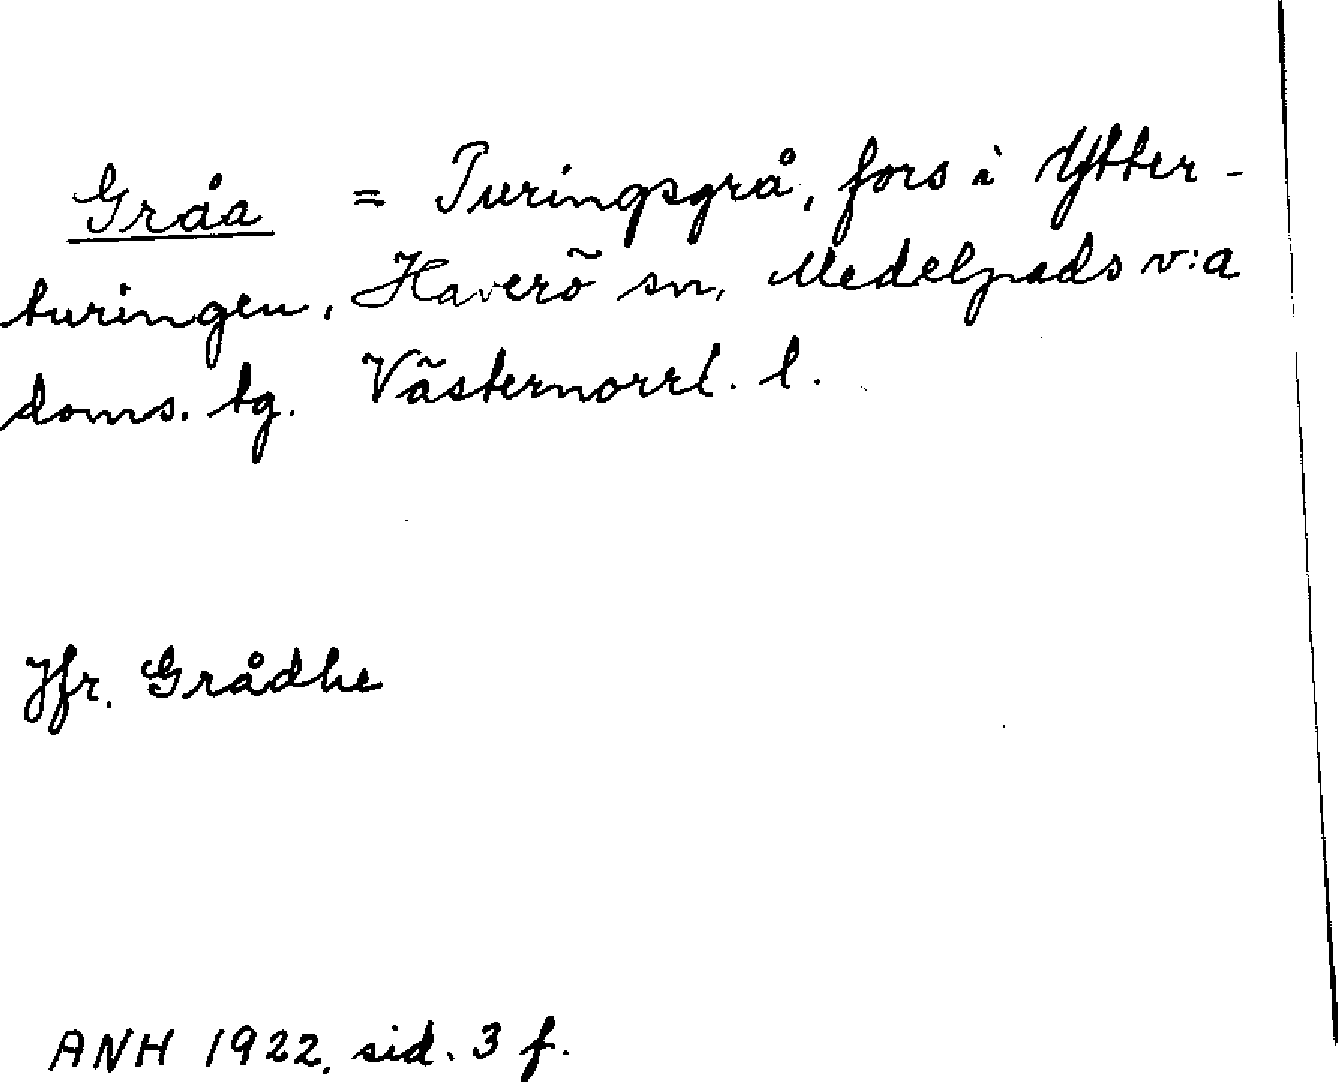 Gråa = Turingsgrå, fors i Ytter-
turingen, Haverö sn, Medelpads v:a
doms. tg. Västernorrl. l.
Jfr. Grådhe
ANH 1922, sid. 3 f.